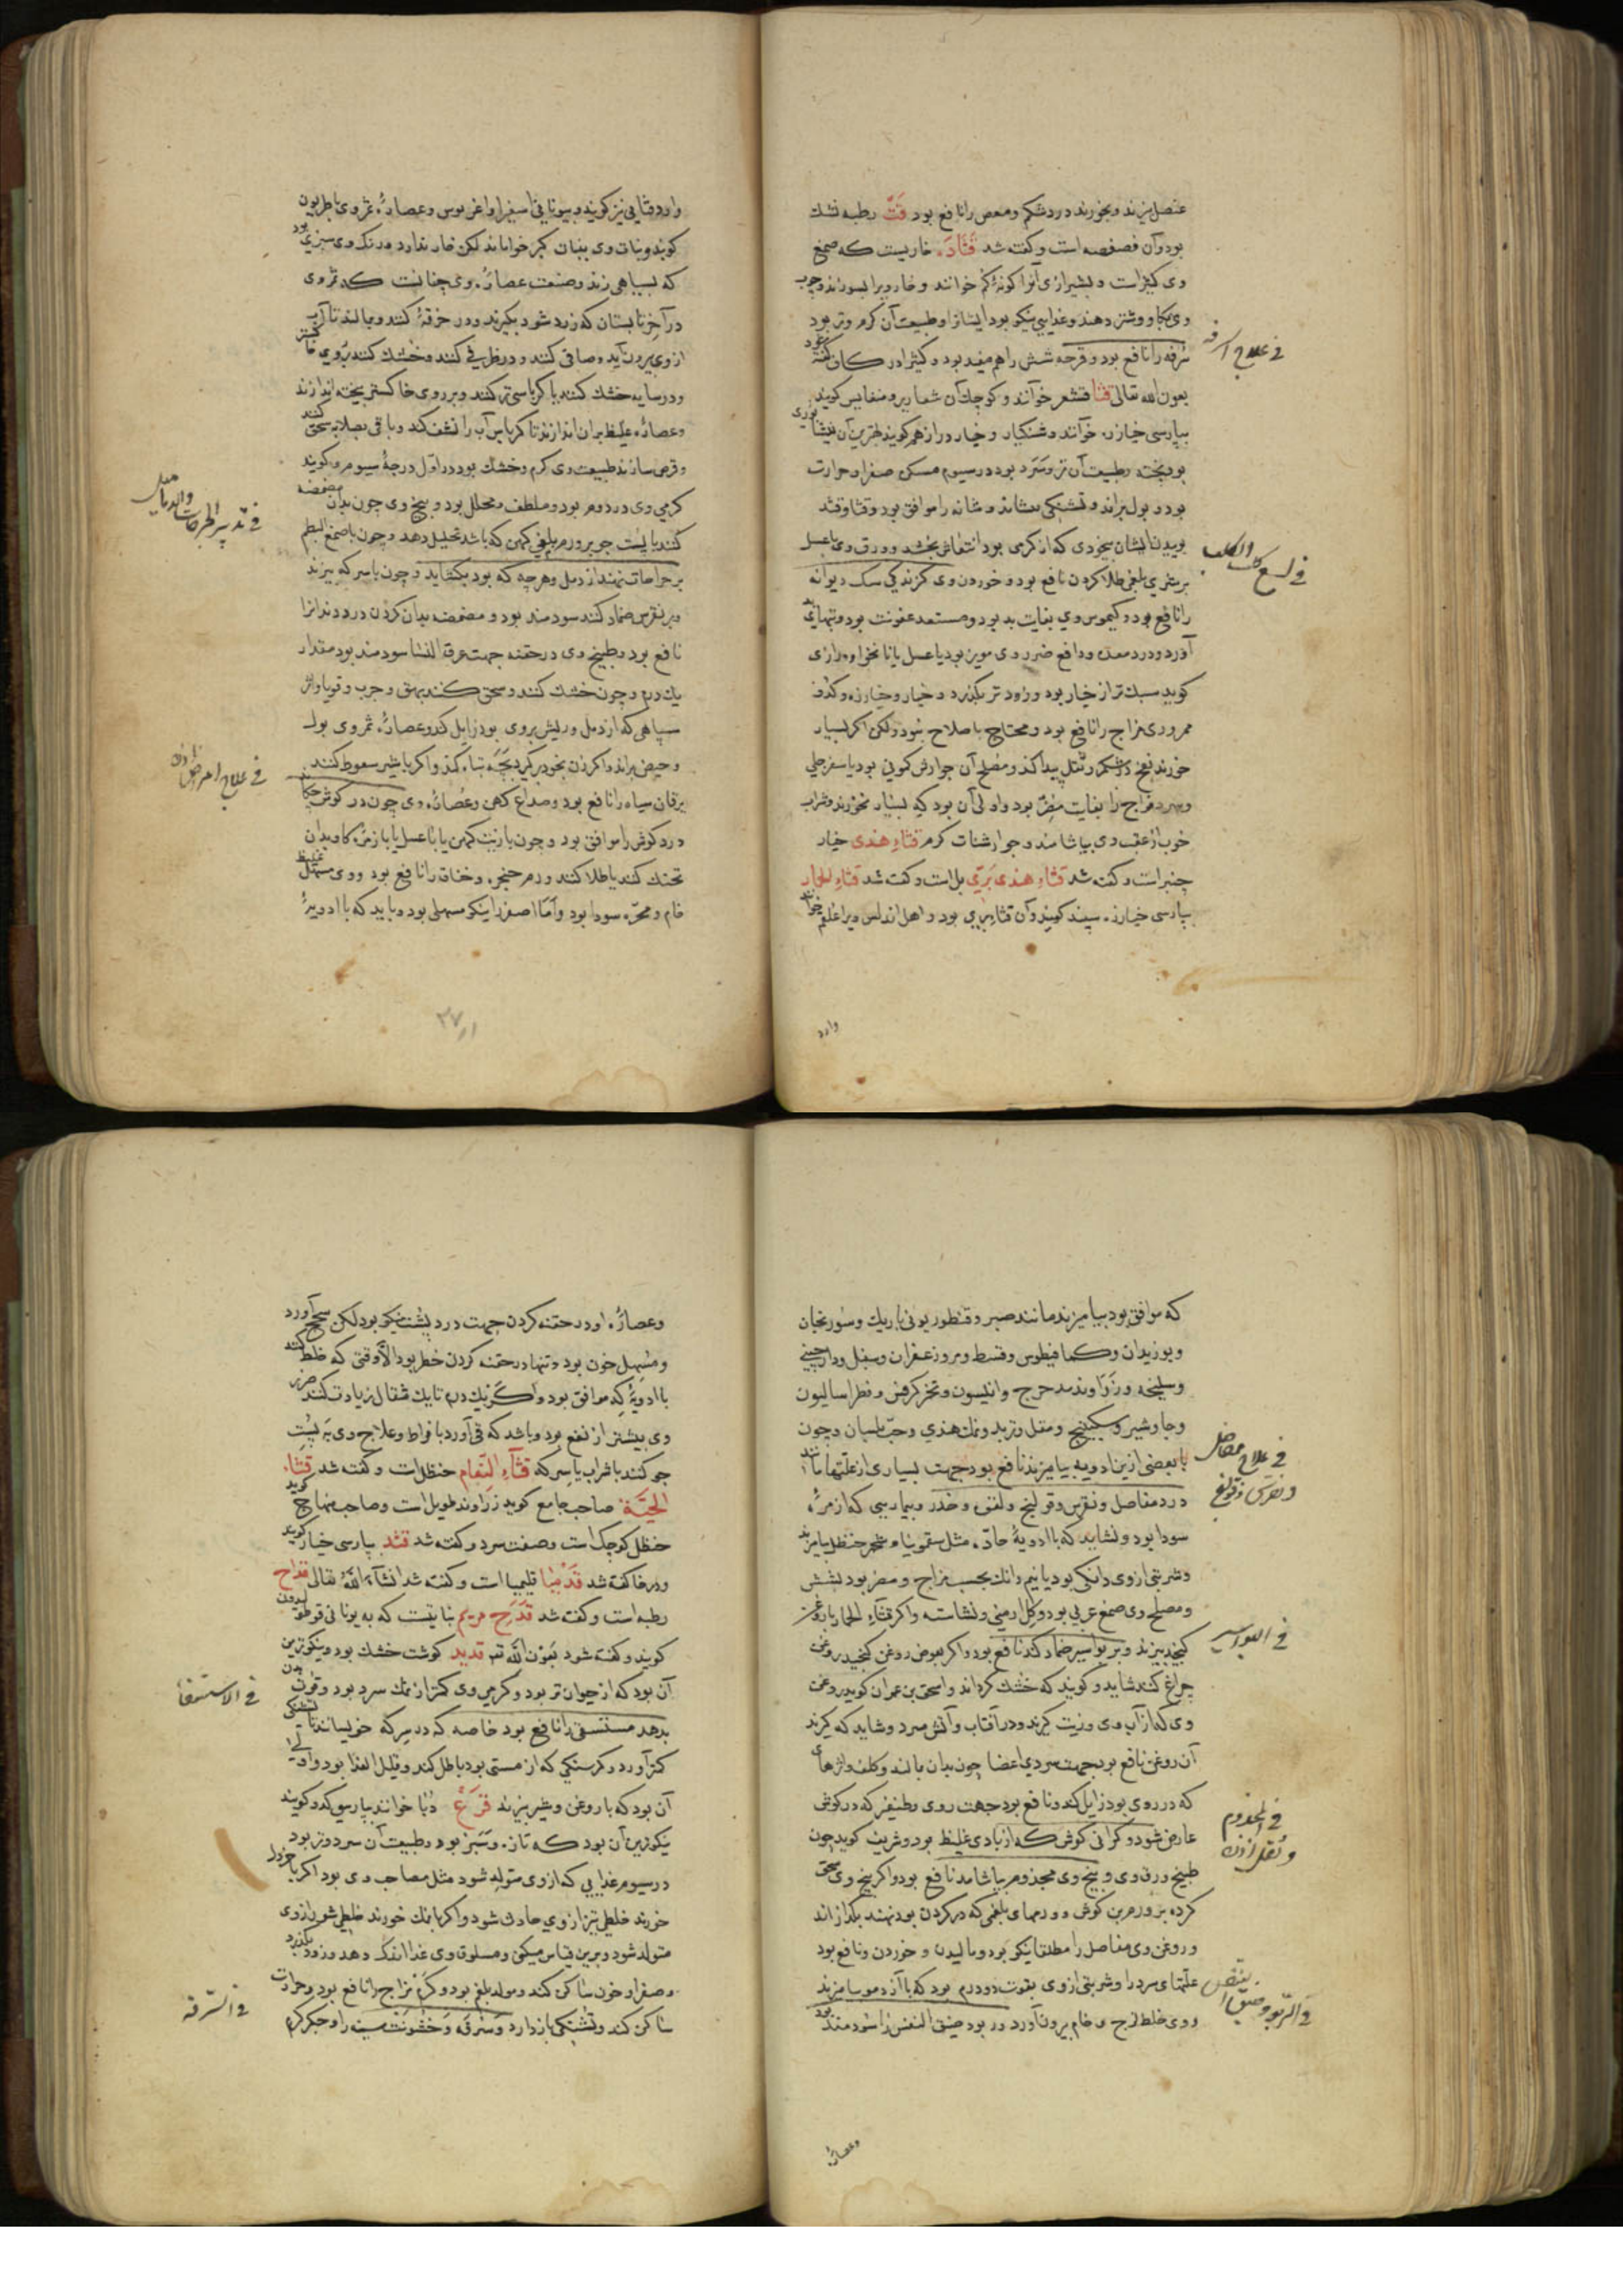 عنصل بپزند و بخورند درد شکم و مغص را نافع بود قت رطبه خشک
بود و آن فصفصه است و گفته شد قتاد خاریست که صمغ
وی کثیراست و بشیرازی آنرا کون خوانند و خار ویرا بسوزند و چوب
وی بگاو و شتر دهند و غذایی نیکو بود ایشانرا و طبیعت آن گرم و تر بود
سرفه را نافع بود و قرحه شش را هم مفید بود و کثیرا در کاف گفته شود
بعون الله تعالی قثا قثد خوانند و کوچک آن شعاریر و ضغابیس گویند
بپارسی خیارزه خوانند و خیار دراز هم گویند بهترین آن نیشابوری
بود پخته و طبیعت آن تر و سرد بود در سیوم مسکن صفرا و حرارت
بود و بول براند و تشنگی بنشاند و مثانه را موافق بود و قثا و قثد
بوییدن ایشان بیخودی که از گرمی بود انتعاش بخشد و ورق وی با عسل
بر شری بلغمی طلا کردن نافع بود و خوردن وی گزندگی سک دیوانه
را نافع بود و کیموس وی بغایت بد بود و مستعد عفونت بود و تبهای
آورد و درد معده و دافع ضرر وی مویز بود یا عسل یا نانخواه و رازی
گوید سبک تر از خیار بود و زود تر بگذرد و خیار و خیارزه و کدو
محروری مزاج را نافع بود و محتاج باصلاح نبود ولکن اگر بسیار
خورند نفخ در شکم و ثقل پیدا کند و مصلح آن جوارش کمونی بود یا سفرجلی
و سرد مزاج را بغایت مضر بود و اولی آن بود که بسیار نخورند و شراب
خوب از عقب وی بیاشامند و جوارشنات گرم قثاء هندی خیار
چنبر است و گفته شد قثاء هندی بری بل است و گفت شد قثاء الحمار
بپارسی خیارزه گویند و آن قثاء بری بود و اهل اندلس ویرا علقم خوانند
وارد
فی علاج السرفه
فی لسع کلب الکلب
گویند و نبات وی بنبات کبر خوانا ماند لکن خار ندارد و رنگ وی سبزی بود
که بسیاهی زند و صنعت عصاره وی چنانست که ثمر وی
در آخر تابستان که زرد شود بگیرند و در خرقه کنند و بمالند تا آب
از وی بیرون آید و صافی کنند و در ظرفی کنند و خشک کنند بروی خاکستر
و در سایه خشک کنند یا کرباسی تر کنند و بر روی خاکستر بیخته اندازند
و عصاره غلیظ بران اندازند تا کرباس آب را نشف کند و باقی بصلابه سحق کنند
و قرص سازند طبیعت وی گرم و خشک بود در اول درجه سیوم و گویند
گرمی وی در دوم بود و ملطف و محلل بود و بیخ وی چون بدان مضمضه
کنند با پست جو بر ورم بلغمی کهن که باشد تحلیل دهد و چون با صمغ البطم
بر جراحات نهند از دمل و هر چه که بود بگشاید و چون با سرکه بپزند
و بر نقرس ضماد کنند سودمند بود و مضمضه بدان کردن درد دندانرا
نافع بود و طبیخ وی در حقنه جهت عرق النسا سودمند بود مقدار
یک درم و چون خشک کنند و سحق کنند بهق و جرب و قوبا و اثر
سیاهی که از دمل و ریش بر روی بود زایل کند و عصاره ثمر وی بول
و حیض براند و اگر زن بخود برگیرد بچه تباه کند و اگر با شیر سعوط کنند
یرقان سیاه را نافع بود و صداع کهن و عصاره وی چون در گوش چکانند
درد گوش را موافق بود و چون با زیت کهن یا با عسل یا با زهره گاو بدان
تحنک کنند یا طلا کنند ورم حنجره و خناق را نافع بود و وی مسهل غلیظ
خام و مره سودا بود و اما اصفر را نیکو مسهلی بود و باید که با ادویه
۲۷
فی علاج امراض اذن
که موافق بود بیامیزند مانند صبر و قنطوریون باریک و سورنجان
و بوزیدان و کمافیطوس و قسط و مر و زعفران و سنبل و دارچینی
و سلیخه و زراوند مدحرج و انیسون و تخم کرفس و فطراسالیون
و جاوشیر و سکبینج و مقل و تربد و نمک هندی و حب بلسان و چون
با بعضی ازین ادویه بیامیزند نافع بود جهت بسیاری از علتها مانند
درد مفاصل و نقرس و قولنج و لقوه و خدر و بیماریی که از مره
سودا بود و نشاید که با ادویه حاد مثل سقمونیا و شحم حنظل بیامیزند
و شربتی از وی دانگی بود یا نیم دانک بحسب مزاج و مضر بود بشش
و مصلح وی صمغ عربی بود و گل ارمنی و نشاسته و اگر قثاء الحمار با روغن
کنجد بپزند و بر بواسیر ضماد کنند نافع بود و اگر بعوض روغن کنجد روغن
چراغ کنند شاید و گویند که خشک گرداند و اسحق بن عمران گوید روغن
وی که از آب وی و زیت گیرند و در آفتاب و آتش میرد و شاید که گیرند
آن روغن نافع بود جهت سردی اعضا چون بدان بمالند و کلف و اثرهای
که در روی بود زایل کند و نافع بود جهت دوی و طنین که در گوش
عارض شود و گرانی گوش که از بادی غلیظ بود و شریف گوید چون
طبیخ ورق وی و بیخ وی مجذوم بیاشامد نافع بود و اگر بیخ وی سحق
کرده بر ورم بن گوش و ورمهای بلغمی که در گردن بود نهند بگدازاند
و روغن وی مفاصل را مطلقا نیکو بود و مالیدن و خوردن و نافع بود
علتهای سرد را و شربتی از وی بقوت دو درم بود که با آرد جو بیامیزند
و وی خلط لزج و خام بیرون آورد و ربو و ضیق النفس را سودمند بود
وعصاره
فی علاج مفاصل
و نقرس و قولنج
فی البواسیر
فی المجذوم
و ثقل اذن
فی الربو و ضیق النفس
وعصاره او در حقنه کردن جهت درد پشت نیکو بود لکن سحج آورد
و مسهل خون بود و تنها در حقنه کردن خطر بود الا وقتی که خلط کنند
با ادویه که موافق بود و اگر نیک درم تا یک مثقال زیادت کنند ضرر
وی بیشتر از نفع بود و باشد که قی آورد بافراط و علاج وی به پست
جو کنند با شراب یا سرکه قثاء النعام حنظل است و گفته شد قثاء
الحیة صاحب جامع گوید زراوند طویل است و صاحب منهاج گوید
حنظل کوچک است و صفت سرد و گفت شد قثد پارسی خیار گویند
و در خا گفته شد قدمیا قلیمیا است و گفته شد انشاء الله تعالی قداح
رطبه است و گفت شد قدح مریم نباتیست که به یونانی قوطولیدون
گویند و گفته شود بعون الله تعه قدید گوشت خشک بود و نیکوترین
آن بود که از حیوان تر بود و گرمی وی کمتر از نمک سرد بود و قوت بدن
بدهد مستسقی را نافع بود خاصه که در سرکه خوبسانند تا تشنگی
کم آورد و گرسنگی که از مستی بود باطل کند و قلیل الغذا بود و اولی
آن بود که با روغن و شیر بپزند قرع دبا خوانند بپارسی کدو گویند
نیکوترین آن بود که تازه و سبز بود و طبیعت آن سرد و تر بود
در سیوم غذایی که از وی متولد شود مثل مصاحب وی بود اگر با خردل
خورند خلطی تیز از وی حادث شود و اگر با نمک خورند خلطی شور از وی
متولد شود و برین قیاس میکن و مسلوق وی غذا اندک دهد و زود بگذرد
و صفرا و خون ساکن کند و مولد بلغم بود و گرم مزاج را نافع بود و حرارت
ساکن کند و تشنگی باز دارد و سرفه و خشونت سینه را و جگر گرم
فی الاستسقا
فی السرفه